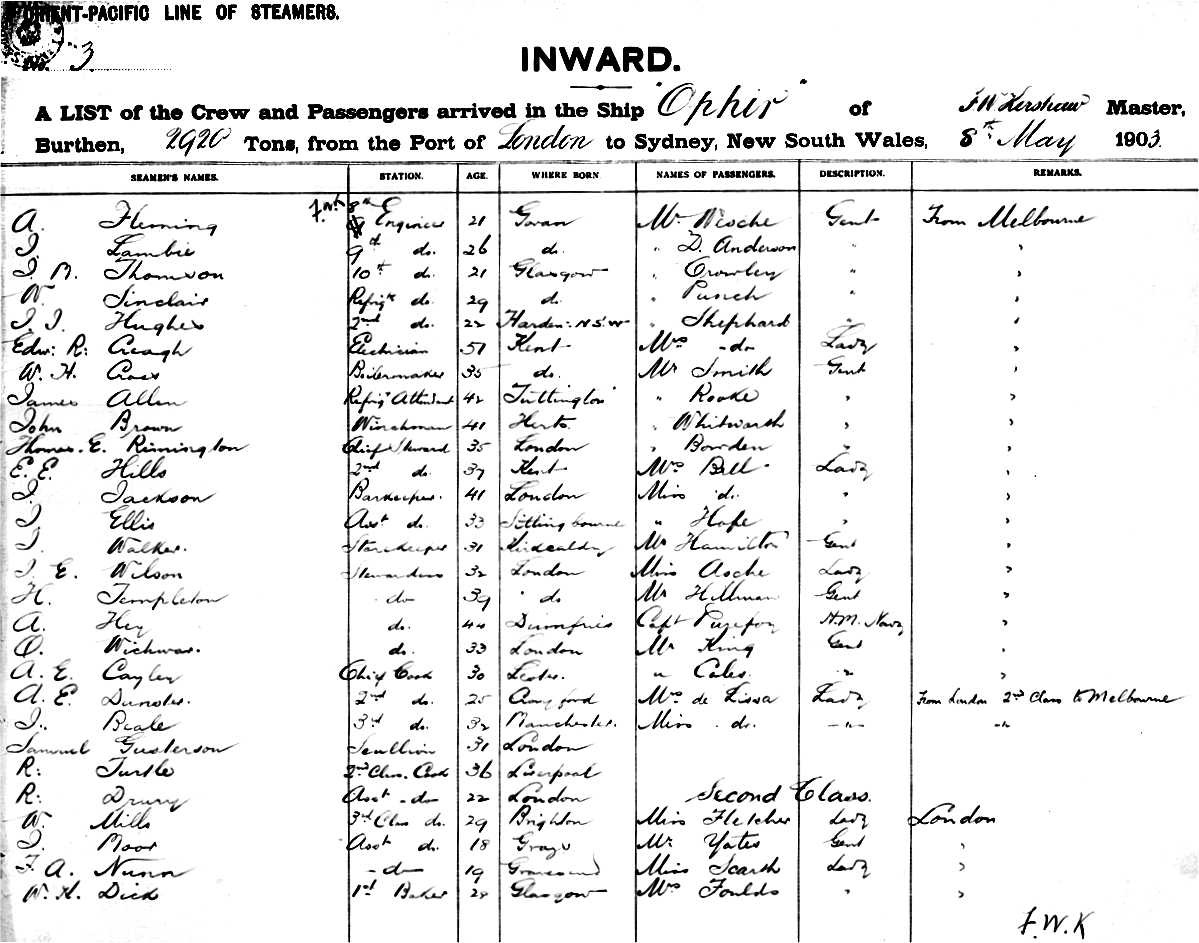 ORIENT-PACIFIC LINE OF STEAMERS.
No. 3
INWARD.
A LIST of the Crew and Passengers arrived in the Ship "Ophir" of F W Kershaw Master,
Burthen, 2920 Tons, from the Port of London to Sydney, New South Wales, 8th May 1903.
SEAMEN'S NAMES. STATION. AGE. WHERE BORN NAMES OF PASSENGERS. DESCRIPTION. REMARKS.
A. Fleming 8th Engineer 21 Govan Mr Nesche Gent From Melbourne
J. Lambie 9th do. 26 do. " D. Anderson "
J. B. Thomson 10th do. 21 Glasgow " Crowley " "
W. Sinclair Refrigr do. 29 do. " Punch " "
J. J. Hughes 2nd do. 22 Harden: N.S.W " Shephard " "
Edw: R: Creagh Electrician 51 Kent Mrs -do- Lady "
W. H. Cross Boilermaker 35 do. Mr Smith Gent "
James Allen Refrigr Attendant 42 Tuttington " Rooke " "
John Brown Winchman 41 Herts. " Whitworth " "
Thomas. E. Rimington Chief Steward 35 London " Bowden " "
E. E. Hills 2nd do. 37 Kent Mrs Bell Lady "
J. Jackson Barkeeper. 41 London Miss do. " "
J. Ellis Asst do. 33 Sittingbourne " Hope " "
J. Walker. Storekeeper 31 Kirdcaldy Mr Hamilton Gent "
J. E. Wilson Stewardess 32 London Miss Asche Lady "
H. Templeton do 39 " do Mr Hillman Gent "
A. Hey do. 44 Dumfries Capt H.M. Navy "
O. do. 33 London Mr King Gent "
A. E. Cayley Chief Cook 30 " Coles. " "
A. E. 2nd do. 25 Mrs de Lissa Lady From London 2nd Class to Melbourne
J. Beale 3rd do. 32 Manchester. Miss do. -"- -"-
Samuel Gusterson Scullion 31 London
R: Turtle 2nd Class. Cook 36 Liverpool
R: Drury Asst -do- 22 London Second Class.
W. Mills 3rd Class do. 29 Brighton Miss Fletcher Lady London
J. Moor Asst do. 18 Grays Mr Yates Gent "
F. A. Nunn -do- 19 Gravesend Miss Scarth Lady "
W. H. Dick 1st Baker 28 Glasgow Mrs Foulds " "
F.W.K